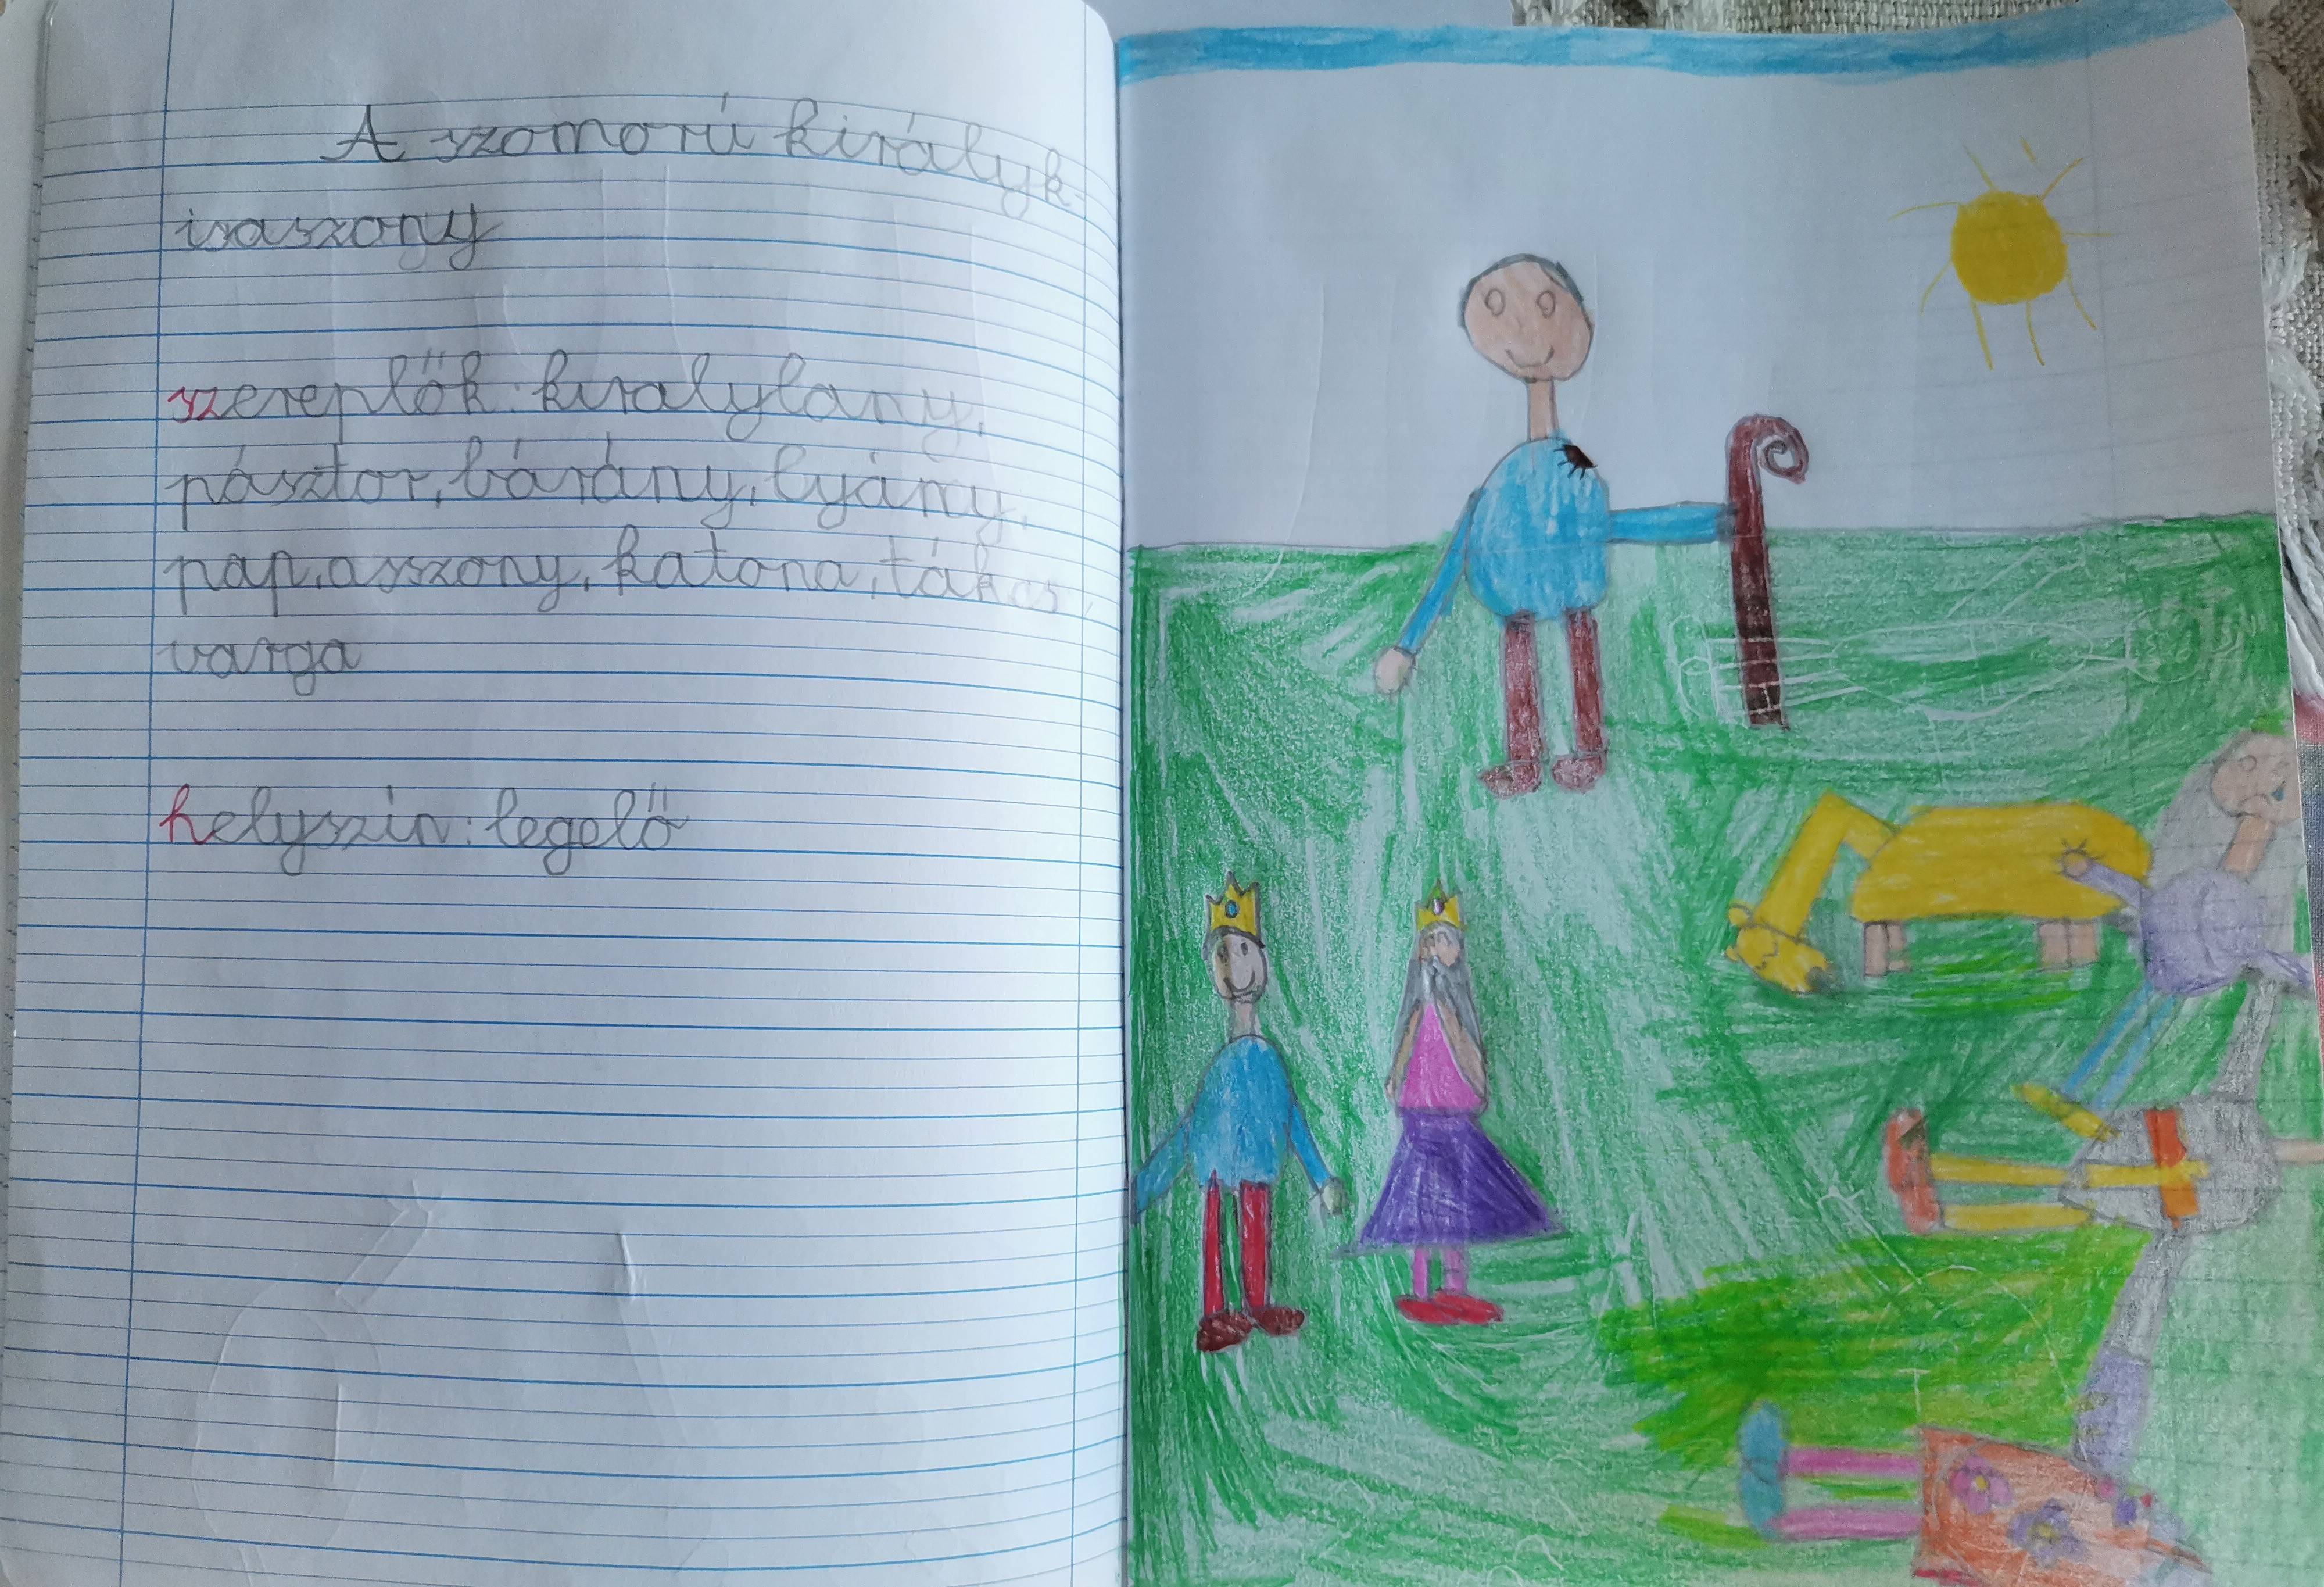 A szomorú királyk-
isaszony
szereplők: kiralylany,
pásztor, bárány, lyány,
pap, asszony, katona, tákacs,
varga
helyszin: legelő